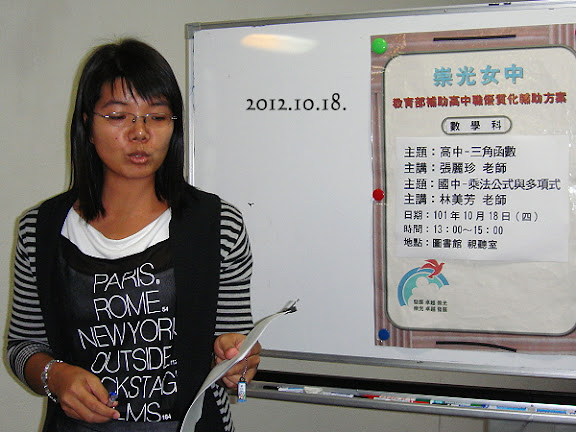 2012.10.18.
崇光女中
教育部補助高中職優質化輔助方案
數學科
主題：高中-三角函數
主講：張麗珍 老師
主題：國中-乘法公式與多項式
主講：林美芳 老師
日期：101年10月18日（四）
時間：13：00～15：00
地點：圖書館 視聽室
PARIS.
ROME.
NEWYORK
OUTSIDE
CKSTAG
EMS